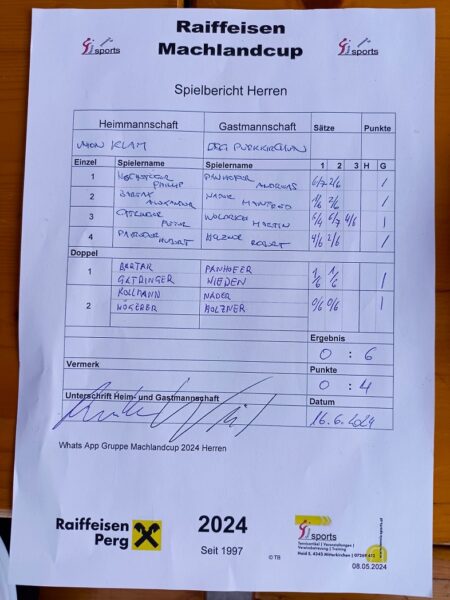 Raiffeisen
Machlandcup
sports
sports
Spielbericht Herren
Heimmannschaft Gastmannschaft Sätze Punkte
UNION KLAM DSG
Einzel Spielername Spielername 1 2 3 H G
1 PHILIPP PANHOFER ANDREAS 6/7 2/6 /
2 ALEXANDER NADER MANFRED 1/6 2/6 /
3 PETER MARTIN 6/4 6/7 4/6 /
4 HUBERT HOLZNER ROBERT 4/6 2/6 /
Doppel
1 BARTAK PANHOFER 1/6 1/6 /
GATRINGER WIEDEN
2 KOLLMANN NADER 0/6 0/6 /
HÖGERER HOLZNER
Ergebnis
0 : 6
Vermerk Punkte
0 : 4
Unterschrift Heim- und Gastmannschaft Datum
16.6.2024
Whats App Gruppe Machlandcup 2024 Herren
Raiffeisen
Perg
2024
Seit 1997
©TB
sports
Tennisartikel | Veranstaltungen |
Vereinsbetreuung | Training
08.05.2024